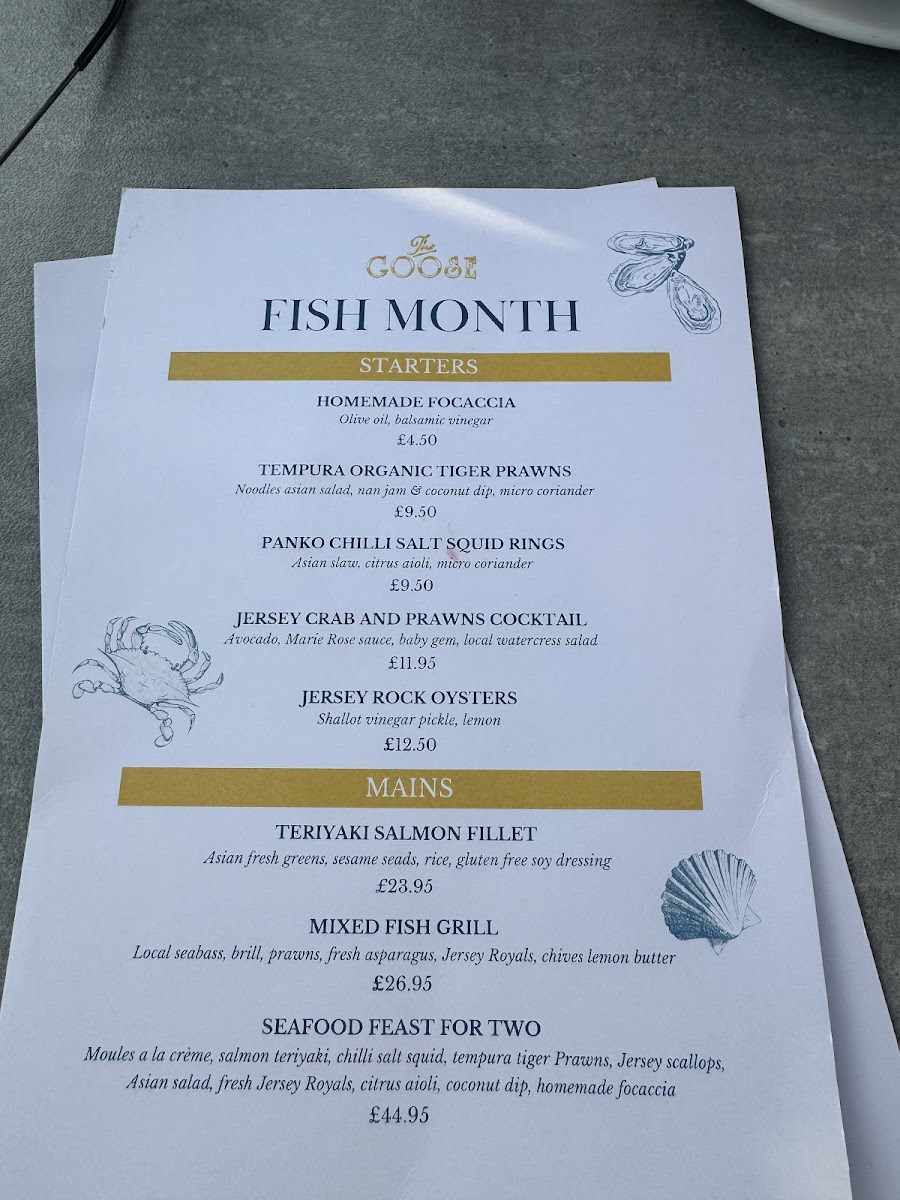 The
GOOSE
FISH MONTH
STARTERS
HOMEMADE FOCACCIA
Olive oil, balsamic vinegar
£4.50
TEMPURA ORGANIC TIGER PRAWNS
Noodles asian salad, nan jam & coconut dip, micro coriander
£9.50
PANKO CHILLI SALT SQUID RINGS
Asian slaw, citrus aioli, micro coriander
£9.50
JERSEY CRAB AND PRAWNS COCKTAIL
Avocado, Marie Rose sauce, baby gem, local watercress salad
£11.95
JERSEY ROCK OYSTERS
Shallot vinegar pickle, lemon
£12.50
MAINS
TERIYAKI SALMON FILLET
Asian fresh greens, sesame seads, rice, gluten free soy dressing
£23.95
MIXED FISH GRILL
Local seabass, brill, prawns, fresh asparagus, Jersey Royals, chives lemon butter
£26.95
SEAFOOD FEAST FOR TWO
Moules a la crème, salmon teriyaki, chilli salt squid, tempura tiger Prawns, Jersey scallops,
Asian salad, fresh Jersey Royals, citrus aioli, coconut dip, homemade focaccia
£44.95